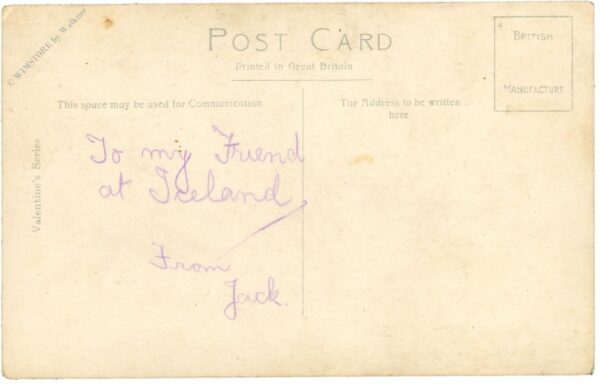 © WIMSTORE by Walkner
POST CARD
Printed in Great Britain
4
BRITISH
MANUFACTURE
This space may be used for Communication
The Address to be written
here
Valentine's Series
To my Friend
at Iceland
From
Jack.